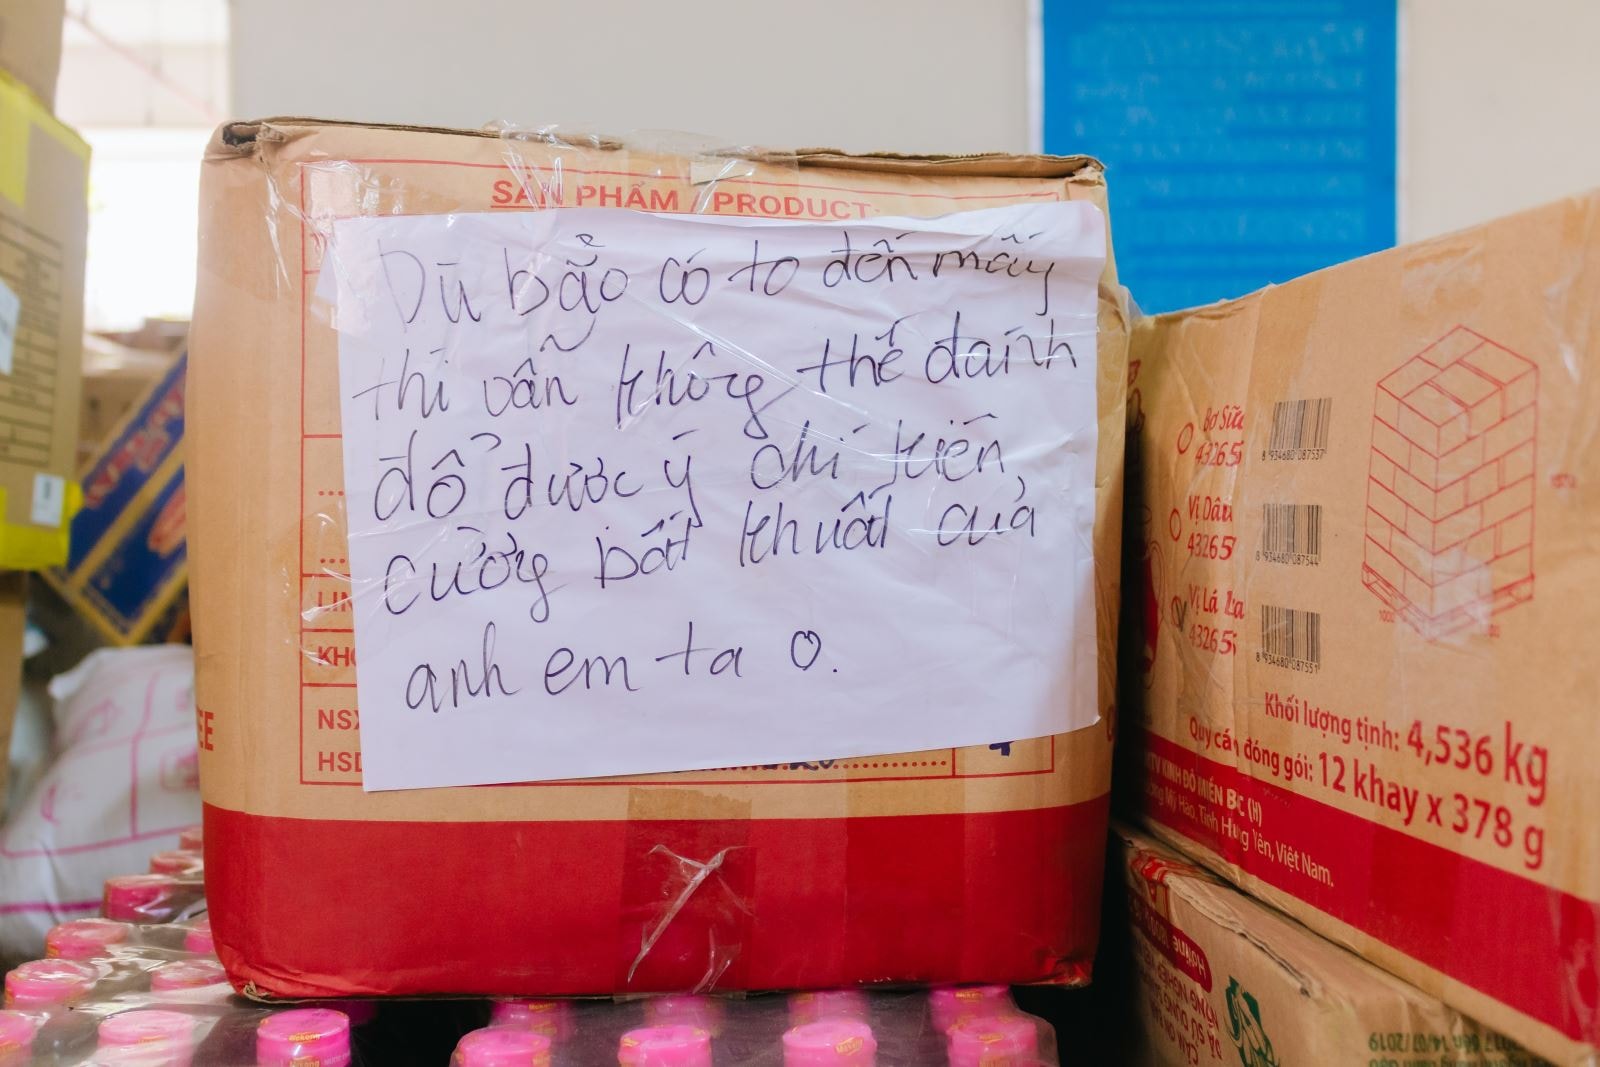 SẢN PHẨM / PRODUCT:
Dù bão có to đến mấy
thì vẫn không thể đánh
đổ được ý chí kiên
cường bất khuất của
anh em ta ♡.
LIN
KHO
NSX
HSD
EE
Bơ Sữa
43265
8 934680 087537
Vị Dâu
43265
8 934680 087544
Vị Lá
43265
8 934680 087551
Khối lượng tịnh: 4,536 kg
Quy cách đóng gói: 12 khay x 378 g
KINH ĐÔ MIỀN BẮC
Mỹ Hào, Tỉnh Hưng Yên, Việt Nam.
14/07/2019